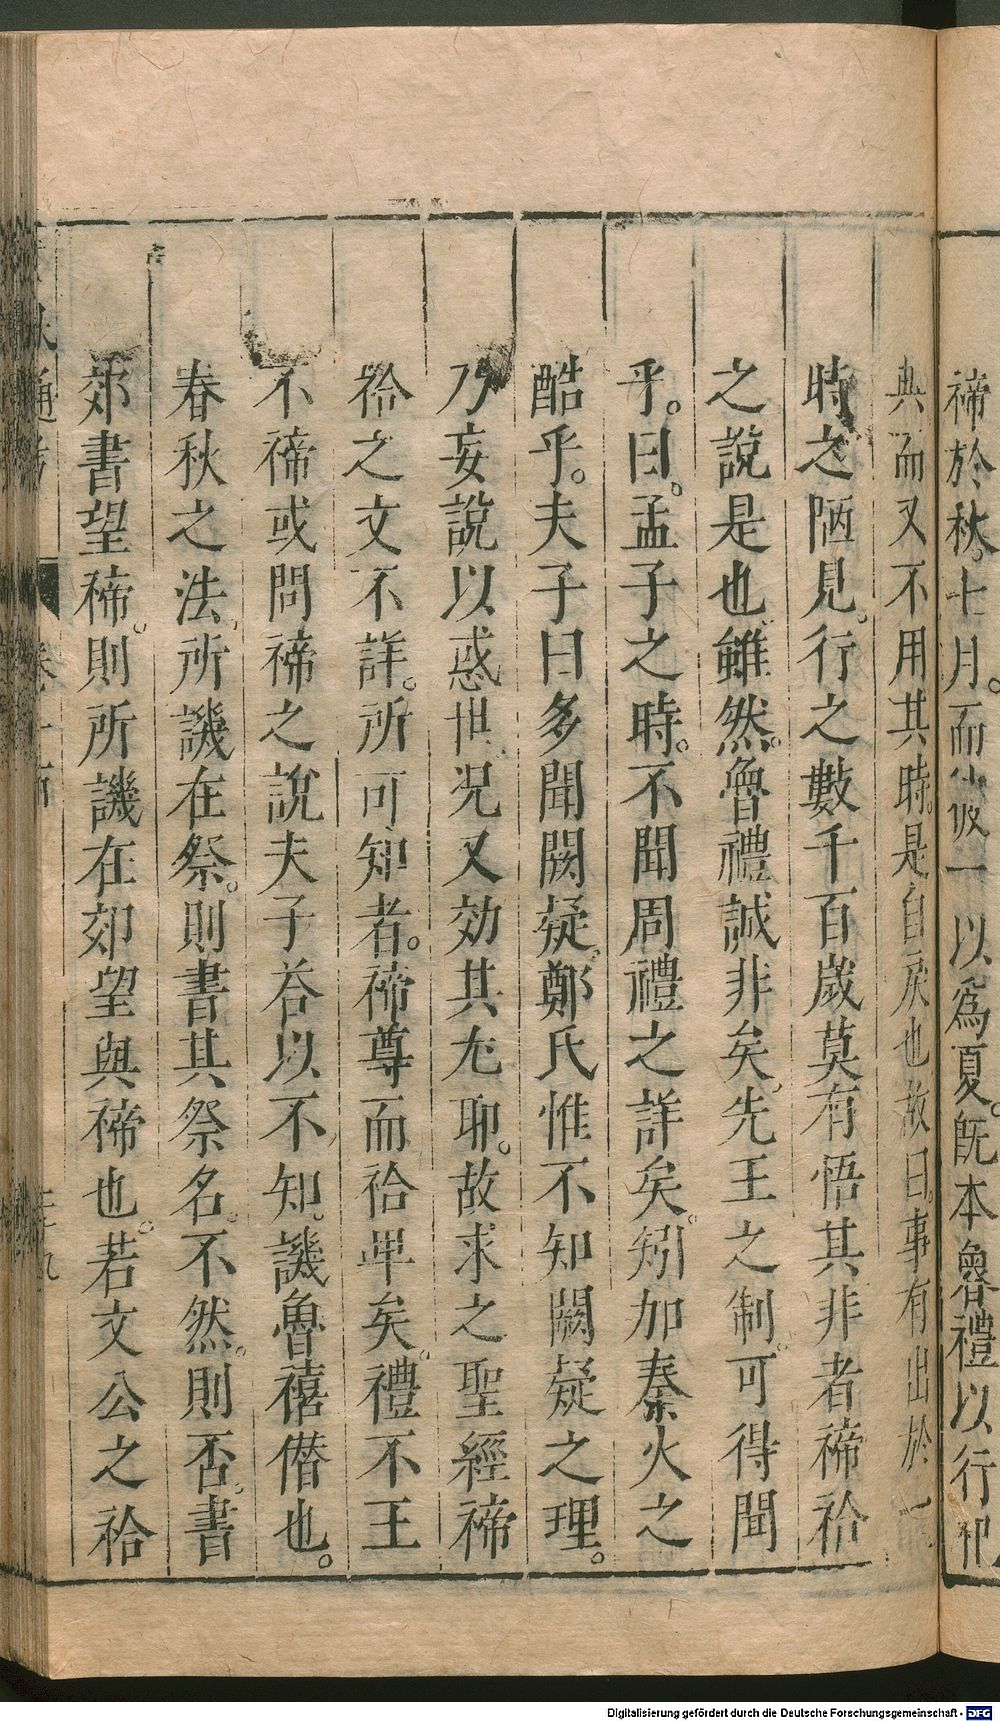 禘於秋七月而
以爲夏既本魯禮以行祀
典而又不用其時是自戾也故曰事有出於一
時之陋見行之數千百歲莫有悟其非者禘祫
之說是也雖然魯禮誠非矣先王之制可得聞
乎曰孟子之時不聞周禮之詳矣矧加秦火之
酷乎夫子曰多聞闕疑鄭氏惟不知闕疑之理
乃妄說以惑世况又効其尤耶故求之聖經禘
祫之文不詳所可知者禘尊而祫卑矣禮不王
不禘或問禘之說夫子荅以不知譏魯禧僭也
春秋之法所譏在祭則書其祭名不然則否書
郊書望禘則所譏在郊望與禘也若文公之祫
通考
Digitalisierung gefördert durch die Deutsche Forschungsgemeinschaft - DFG